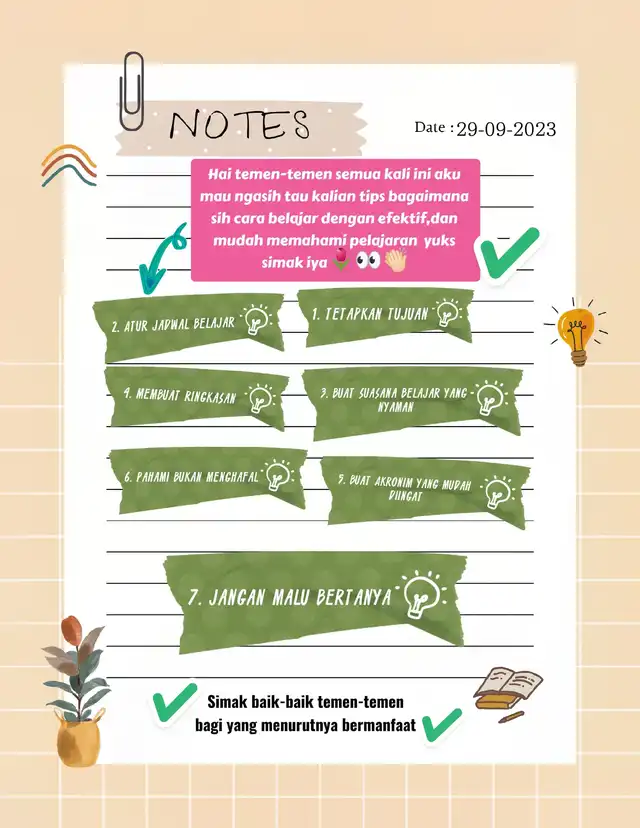 NOTES
Date : 29-09-2023
Hai temen-temen semua kali ini aku
mau ngasih tau kalian tips bagaimana
sih cara belajar dengan efektif,dan
mudah memahami pelajaran yuks
simak iya 🌷👀👏🏻
2. ATUR JADWAL BELAJAR
1. TETAPKAN TUJUAN
4. MEMBUAT RINGKASAN
3. BUAT SUASANA BELAJAR YANG
NYAMAN
6. PAHAMI BUKAN MENGHAFAL
5. BUAT AKRONIM YANG MUDAH
DIINGAT
7. JANGAN MALU BERTANYA
Simak baik-baik temen-temen
bagi yang menurutnya bermanfaat